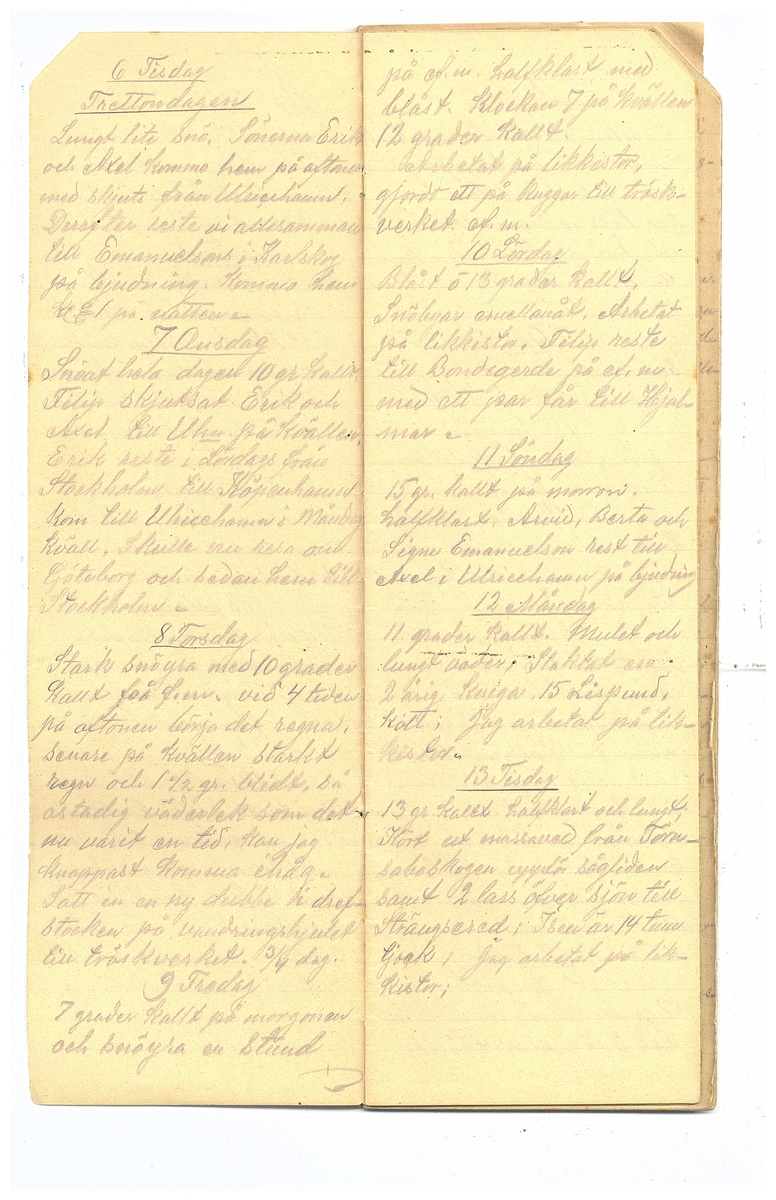 6 Tisdag
Trettondagen
Lungt lite snö. Sönerna Erik
och Axel komma hem på aftonen
med skjuts från Ulricehamn.
Derefter reste vi allesamman
till Emanuelsons i Karlskog
på bjudning. Komma hem
Kl 1 på natten.
7 Onsdag
Snöat hela dagen 10 gr. kallt.
Filip skjutsat Erik och
Axel till Uhn på kvällen.
Erik reste i Lördags från
Stockholm till Köpenhamn
kom till Ulricehamn i Måndag
kväll. Skulle nu resa om
Göteborg och sedan hem till
Stockholm.
8 Torsdag
Stark snöyra med 10 grader
kallt på f.m. vid 4 tiden
på aftonen börja det regna.
senare på kvällen starkt
regn och 1 1/2 gr. blidt, så
ostadig väderlek som det
nu varit en tid, kan jag
knappast komma ihåg.
Satt in en ny dubbe i dref-
stocken på vandringshjulet
till tröskverket. 3/4 dag.
9 Fredag
7 grader kallt på morgonen
och snöyra en stund
på ef.m. halfklart med
blåst. Klockan 7 på kvällen
12 grader kallt.
Arbetat på likkistor,
gjordt ett på kuggar till trösk-
verket. ef.m.
10 Lördag
Blåst o 13 grader kallt.
Snöbyar emellanåt. Arbetat
på likkistor. Filip reste
till Bondegerde på ef.m
med ett par får till Hjal-
mar.
11 Söndag
15 gr. kallt på morron.
halfklart. Arvid, Berta och
Signe Emanuelson rest till
Axel i Ulricehamn på bjudning
12 Måndag
11 grader kallt. Mulet och
lungt väder; Slaktat en
2 årig kviga. 15 Lispund.
kött; Jag arbetat på lik-
kistor.
13 Tisdag
13 gr. kallt halfklart och lungt;
Kört ut massaved från Törn-
saboskogen uppför sågliden
samt 2 lass öfver sjön till
Strängsered; Isen är 14 tum
tjock; Jag arbetat på lik-
kistor;